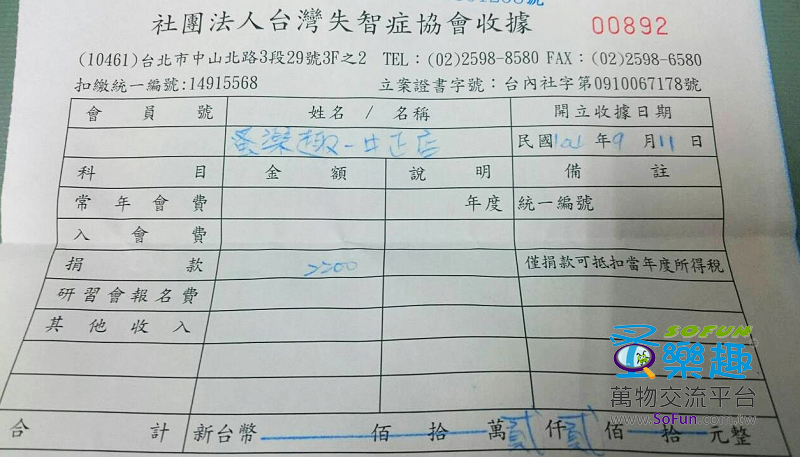 社團法人台灣失智症協會收據 00892
(10461)台北市中山北路3段29號3F之2 TEL：(02)2598-8580 FAX：(02)2598-6580
扣繳統一編號:14915568 立案證書字號：台內社字第0910067178號
會員號 姓名 / 名稱 開立收據日期
蚤樂趣-中正店 民國101年9月11日
科目 金額 說明 備註
常年會費 年度 統一編號
入會費
捐款 2200 僅捐款可抵扣當年度所得稅
研習會報名費
其他收入
蚤樂趣 SOFUN
萬物交流平台
www.SoFun.com.tw
合計 新台幣 佰 拾 萬 貳 仟 貳 佰 拾 元整